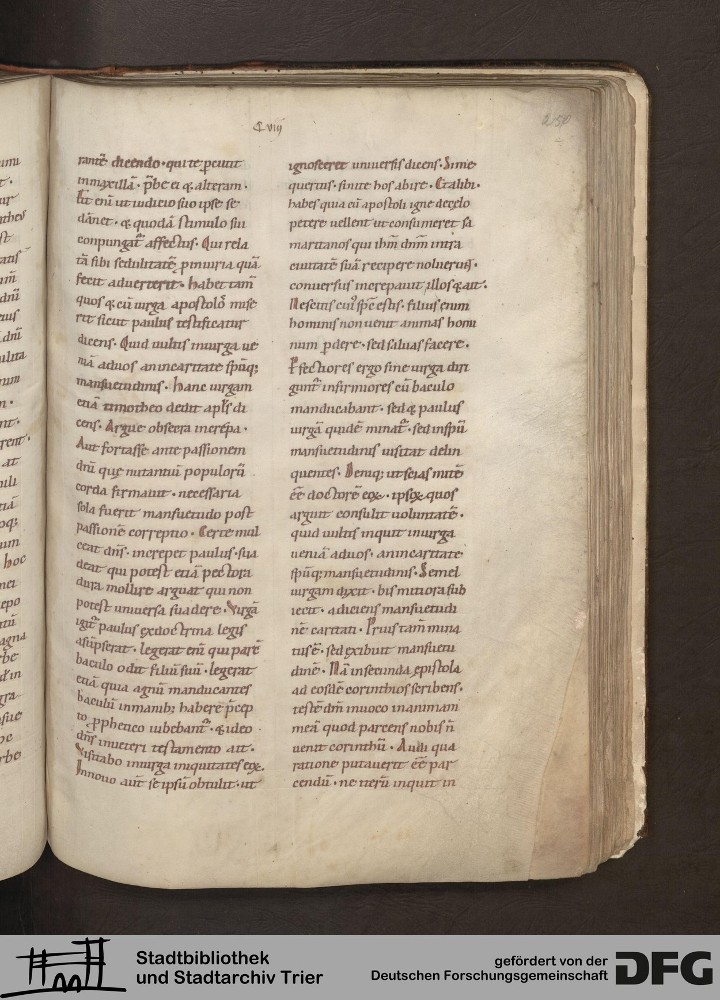 C viij
250
rantē dicendo · qui te ꝑcutit
in maxillā · p̄be ei & alteram ·
Fit eni ut iudicio suo ipse se
dānet · & quodā stimulo sui
conpungat᷑ affectus · Qui rela
tā sibi sedulitatē ꝑ iniuria quā
fecit adverterit · Habet tam̄
quos & cū uirga apostolꝰ mise
rit sicut paulus testificatur
dicens · Quid uultis in uirga ue
niā ad uos an in caritate spūq;
mansuetudinis · Hanc uirgam
etiā timotheo dedit apl̄s di
cens · Argue obsecra increpa ·
Aut fortasse ante passionem
dn̄i que mitantiū populorū
corda firmauit · necessaria
sola fuerit mansuetudo post
passionē correptio · Certe mul
ceat dn̄s · increpet paulus · sua
deat qui potest etiā pectora
dura mollire arguat qui non
potest universa suadere · Virgā
igit᷑ paulus ex doctrina legis
asūpserat · legerat eni qui parc̄
baculo odit filiū suū · legerat
etiā quia agnū manducantes
baculū in manib; habere p̄cep
to ꝓphetico iubebant᷑ · & ideo
dn̄s in ueteri testamento ait ·
Visitabo in uirga iniquitates eoꝝ ·
In nouo aut̄ se ipsū obtulit · ut
ignosceret universis dicens · Si me
queritis · sinite hos abire · Et alibi ·
habes quia cū apostoli igne de celo
petere uellent ut consumeret sa
maritanos qui ihm̄ dn̄m intra
ciuitatē suā recipere noluerūt ·
conuersus increpauit illos & ait ·
Nescitis cuiꝰ spc̄ estis · filius enim
hominis non uenit animas homi
num ꝑdere · sed saluas facere ·
Pfectiores ergo sine uirga diri
gunt᷑ infirmiores cū baculo
manducabant · sed & paulus
uirgā quidē minat᷑ · sed in spū
mansuetudinis uisitat delin
quentes · Deniq; ut scias mitē
ēē doctorē eoꝝ · ipsoꝝ quos
arguit consulit uoluntatē ·
quid uultis inquit in uirga
ueniā ad uos · an in caritate
spūq; mansuetudinis · Semel
uirgam dixit · bis mitiora sub
iecit · adiciens mansuetudi
nē caritati · Prius tam̄ mina
tus ē · sed exibuit mansuetu
dinē · Nā in secunda epistola
ad eosdē corinthios scribens ·
testē dm̄ inuoco in animam
meā quod parcens nobis n̄
ueni corinthū · Audi qua
ratione putauerit ēē par
cendū · ne iterū inquit in
Stadtbibliothek
und Stadtarchiv Trier
gefördert von der
Deutschen Forschungsgemeinschaft
DFG